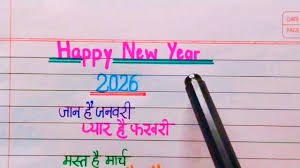 Happy New Year
2026
जान है जनवरी
प्यार है फरवरी
मस्त है मार्च